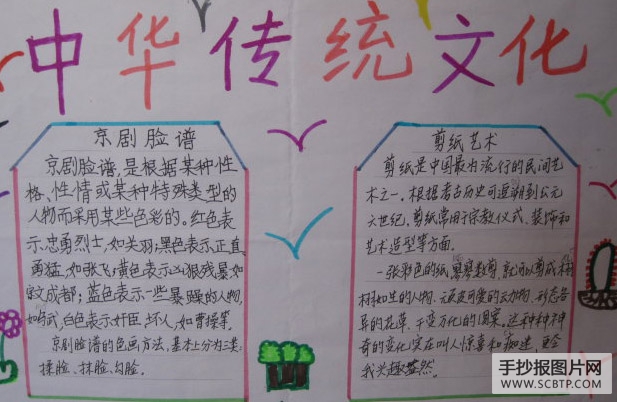 中华传统文化
京剧脸谱
京剧脸谱,是根据某种性
格、性情或某种特殊类型的
人物而采用某些色彩的。红色表
示忠勇烈士,如关羽;黑色表示正直、
勇猛,如张飞;黄色表示凶狠残暴如
成都;蓝色表示一些暴躁的人物,
如 白色表示奸臣、坏人,如曹操等。
京剧脸谱的色画方法,基本上分为三类:
揉脸、抹脸、勾脸。
剪纸艺术
剪纸是中国最为流行的民间艺
术之一。根据考古历史可追溯到公元
六世纪。剪纸常用于宗教仪式、装饰和
艺术造型等方面。
一张彩色的纸, 数剪,就可以剪成栩
栩如生的人物、 可爱的动物、形态各
异的花草、千变万化的图案。这种种神
奇的变化实在叫人惊喜和痴迷,更令
我兴趣盎然。
手抄报图片网
WWW.SCBTP.COM